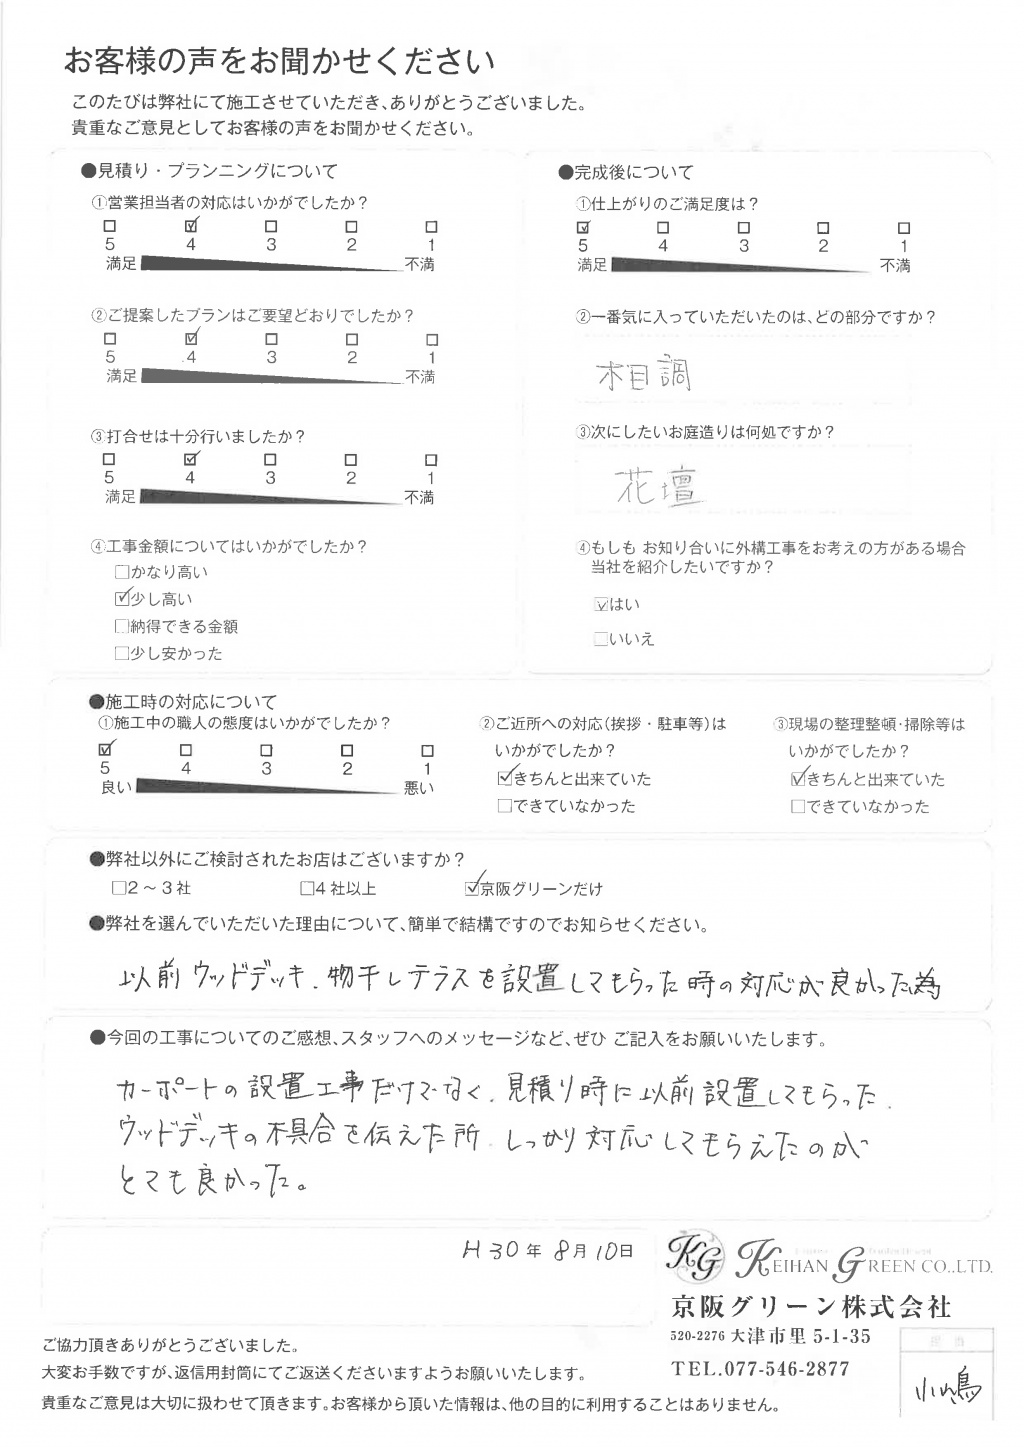 お客様の声をお聞かせください
このたびは弊社にて施工させていただき、ありがとうございました。
貴重なご意見としてお客様の声をお聞かせください。
●見積り・プランニングについて
①営業担当者の対応はいかがでしたか？
□ ☑ □ □ □
5 4 3 2 1
満足 不満
②ご提案したプランはご要望どおりでしたか？
□ ☑ □ □ □
5 4 3 2 1
満足 不満
③打合せは十分行いましたか？
□ ☑ □ □ □
5 4 3 2 1
満足 不満
④工事金額についてはいかがでしたか？
□かなり高い
☑少し高い
□納得できる金額
□少し安かった
●完成後について
①仕上がりのご満足度は？
☑ □ □ □ □
5 4 3 2 1
満足 不満
②一番気に入っていただいたのは、どの部分ですか？
木目調
③次にしたいお庭造りは何処ですか？
花壇
④もしも お知り合いに外構工事をお考えの方がある場合
当社を紹介したいですか？
☑はい
□いいえ
●施工時の対応について
①施工中の職人の態度はいかがでしたか？
☑ □ □ □ □
5 4 3 2 1
良い 悪い
②ご近所への対応（挨拶・駐車等）は
いかがでしたか？
☑きちんと出来ていた
□できていなかった
③現場の整理整頓・掃除等は
いかがでしたか？
☑きちんと出来ていた
□できていなかった
●弊社以外にご検討されたお店はございますか？
□2～3社 □4社以上 ☑京阪グリーンだけ
●弊社を選んでいただいた理由について、簡単で結構ですのでお知らせください。
以前ウッドデッキ、物干しテラスを設置してもらった時の対応が良かった為
●今回の工事についてのご感想、スタッフへのメッセージなど、ぜひ ご記入をお願いいたします。
カーポートの設置工事だけでなく、見積り時に以前設置してもらった、
ウッドデッキの不具合を伝えた所、しっかり対応してもらえたのが
とても良かった。
H30年 8月10日
KG KEIHAN GREEN CO.,LTD.
京阪グリーン株式会社
520-2276 大津市里 5-1-35
TEL.077-546-2877
ご協力頂きありがとうございました。
大変お手数ですが、返信用封筒にてご返送くださいますようお願いいたします。
貴重なご意見は大切に扱わせて頂きます。お客様から頂いた情報は、他の目的に利用することはありません。